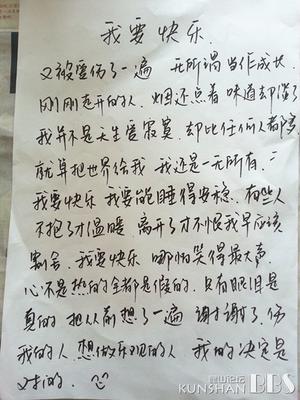 我要快乐
又被爱伤了一遍 无所谓当作成长
刚刚走开的人 烟还点着 味道却淡了
我并不是天生爱寂寞 却比任何人都多
就算把世界给我 我还是一无所有.
我要快乐 我要能睡得安稳. 有些人
不抱了才温暖 离开了才不恨我早应该
割舍. 我要快乐 哪怕笑得最大声.
心不是热的全都是假的. 只有眼泪是
真的 把从前想了一遍 谢才谢了. 伤
我的人 想做乐观的人 我的决定是
对的.
昆山论坛
KUNSHAN BBS